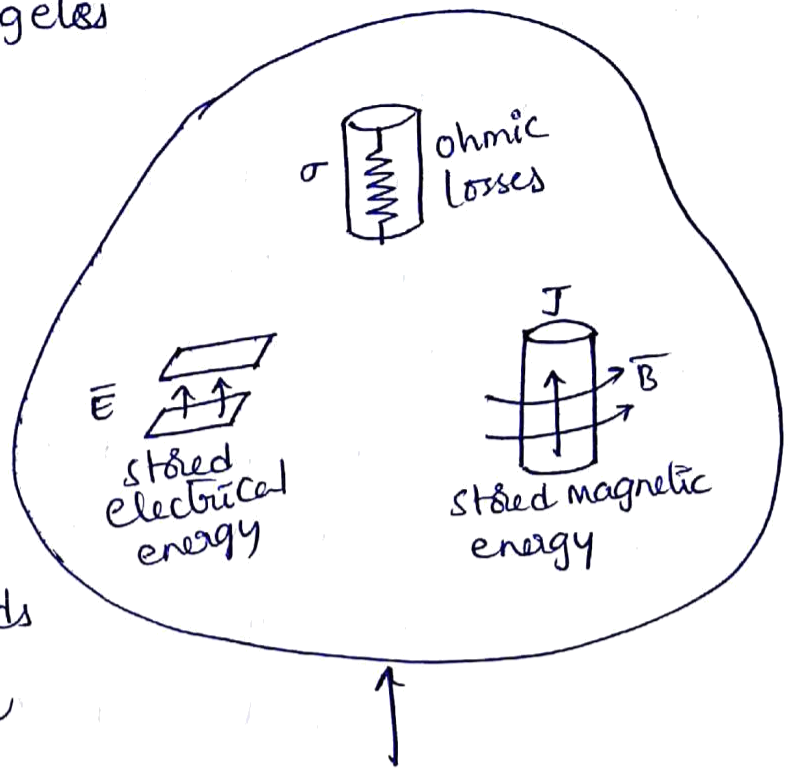 geles
σ
ohmic
losses
J
E̅
B̅
stored
electrical
energy
stored magnetic
energy
ds